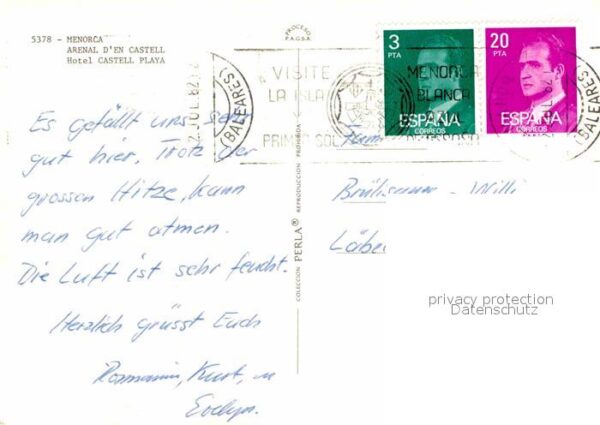 5378 - MENORCA
ARENAL D'EN CASTELL
Hotel CASTELL PLAYA
Es gefällt uns sehr
gut hier. Trotz der
grossen Hitze, kann
man gut atmen.
Die Luft ist sehr feucht.
Herzlich grüsst Euch
Rosmarie, Kurt, u
Evelyn.
PROCESO
P.A.G.S.A.
COLECCION PERLA® REPRODUCCION PROHIBIDA
3
PTA
ESPAÑA
CORREOS
20
PTA
ESPAÑA
CORREOS
VISITE
LA ISLA
PRIMER SOL
MENORCA
BLANCA
JUL.82
(BALEARES)
(BALEARES)
Fam
Willi
privacy protection
Datenschutz